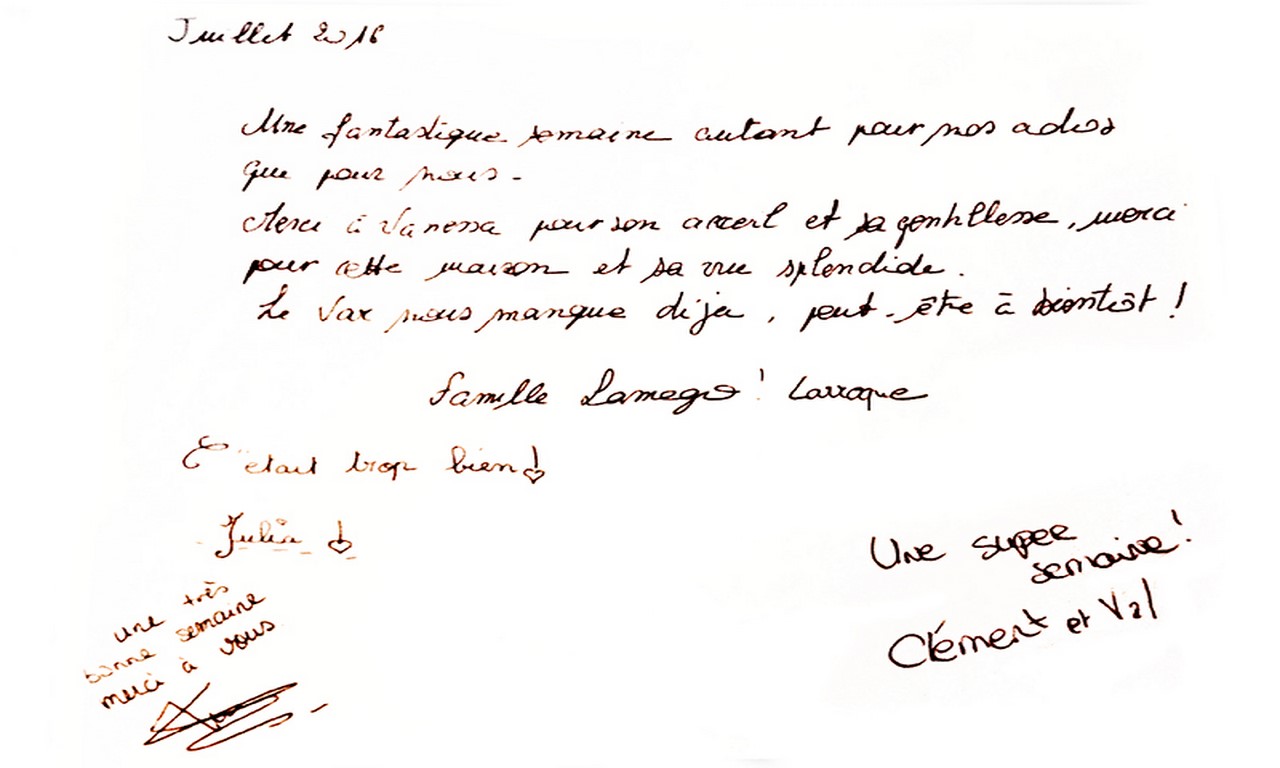 Juillet 2016
Une fantastique semaine autant pour nos ados
que pour nous.
Merci à Vanessa pour son accueil et sa gentillesse, merci
pour cette maison et sa vue splendide.
Le Var nous manque déja, peut-être à bientôt !
Famille Larroque
C'était trop bien!
Julia !
Une super
semaine!
Clément et Val
une très
bonne semaine
merci à vous